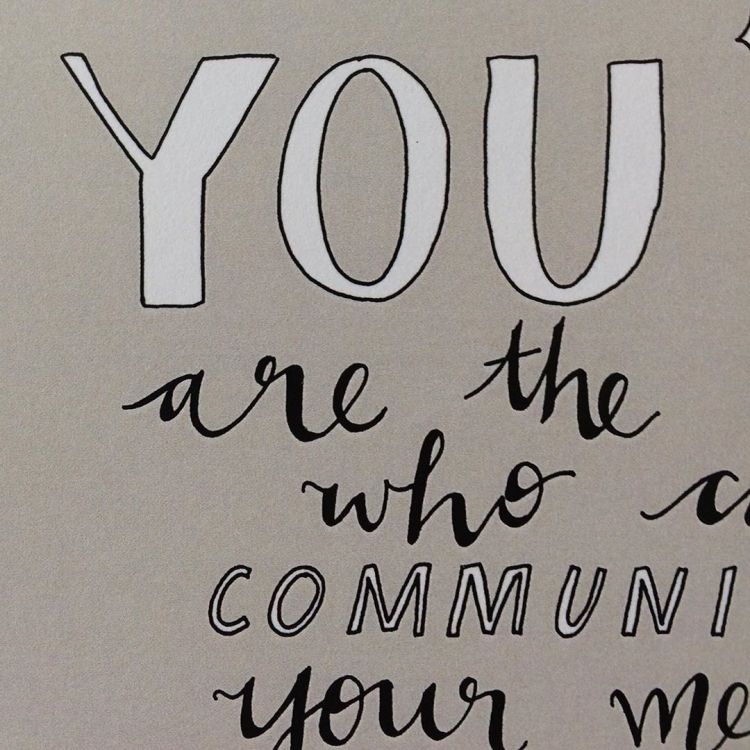 YOU
are the
who
COMMUNI
your me